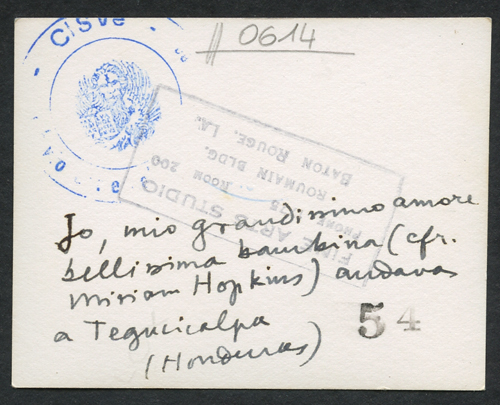 CISVe
0614
FINE ARTS STUDIO
PHONE
ROOM 200
ROUMAIN BLDG.
BATON ROUGE, LA.
Jo, mio grandissimo amore
bellissima bambina (cfr.
Miriam Hopkins) andavas
a Tegucicalpa
(Honduras)
54